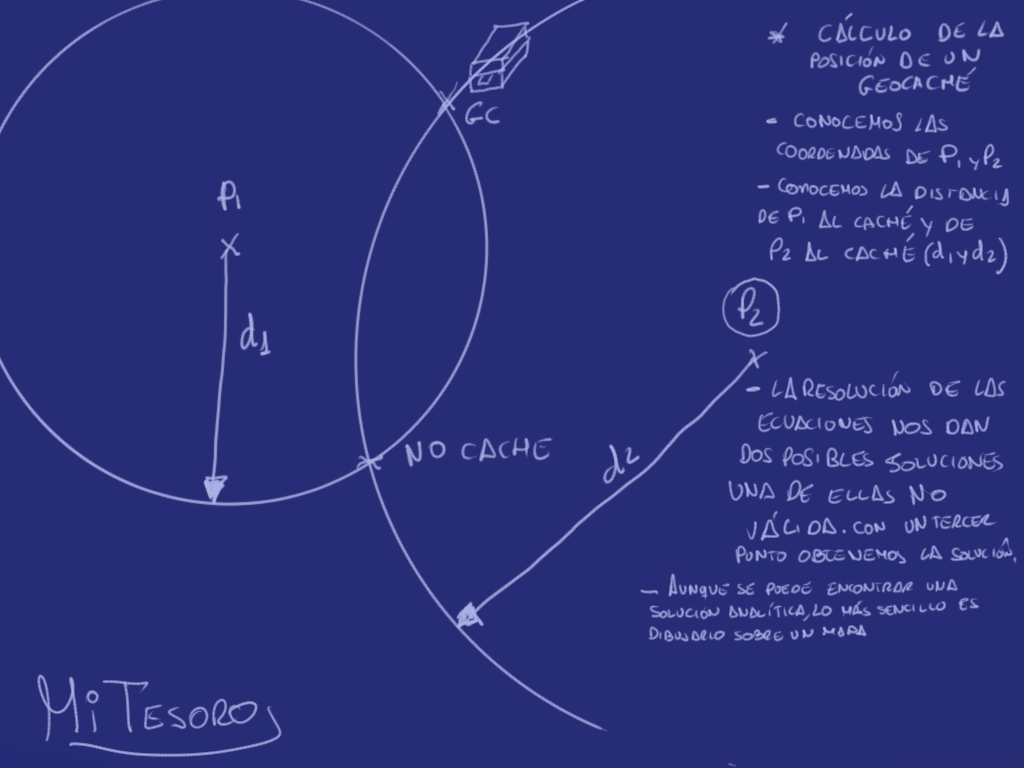 * CÁLCULO DE LA
POSICIÓN DE UN
GEOCACHÉ
- CONOCEMOS LAS
COORDENADAS DE P1 y P2
- CONOCEMOS LA DISTANCIA
DE P1 AL CACHÉ Y DE
P2 AL CACHÉ (d1 y d2)
GC
P1
d1
P2
- LA RESOLUCIÓN DE LAS
ECUACIONES NOS DAN
DOS POSIBLES SOLUCIONES
UNA DE ELLAS NO
VÁLIDA. CON UN TERCER
PUNTO OBTENEMOS LA SOLUCIÓN.
NO CACHE
d2
- AUNQUE SE PUEDE ENCONTRAR UNA
SOLUCIÓN ANALÍTICA, LO MÁS SENCILLO ES
DIBUJARLO SOBRE UN MAPA
Mi TESORO